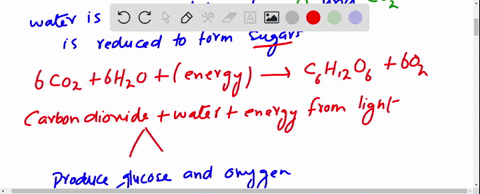 water is CO2
is reduced to form sugars
6CO2 + 6H2O + (energy) → C6H12O6 + 6O2
Carbondioxide + water + energy from light
Produce glucose and oxygen